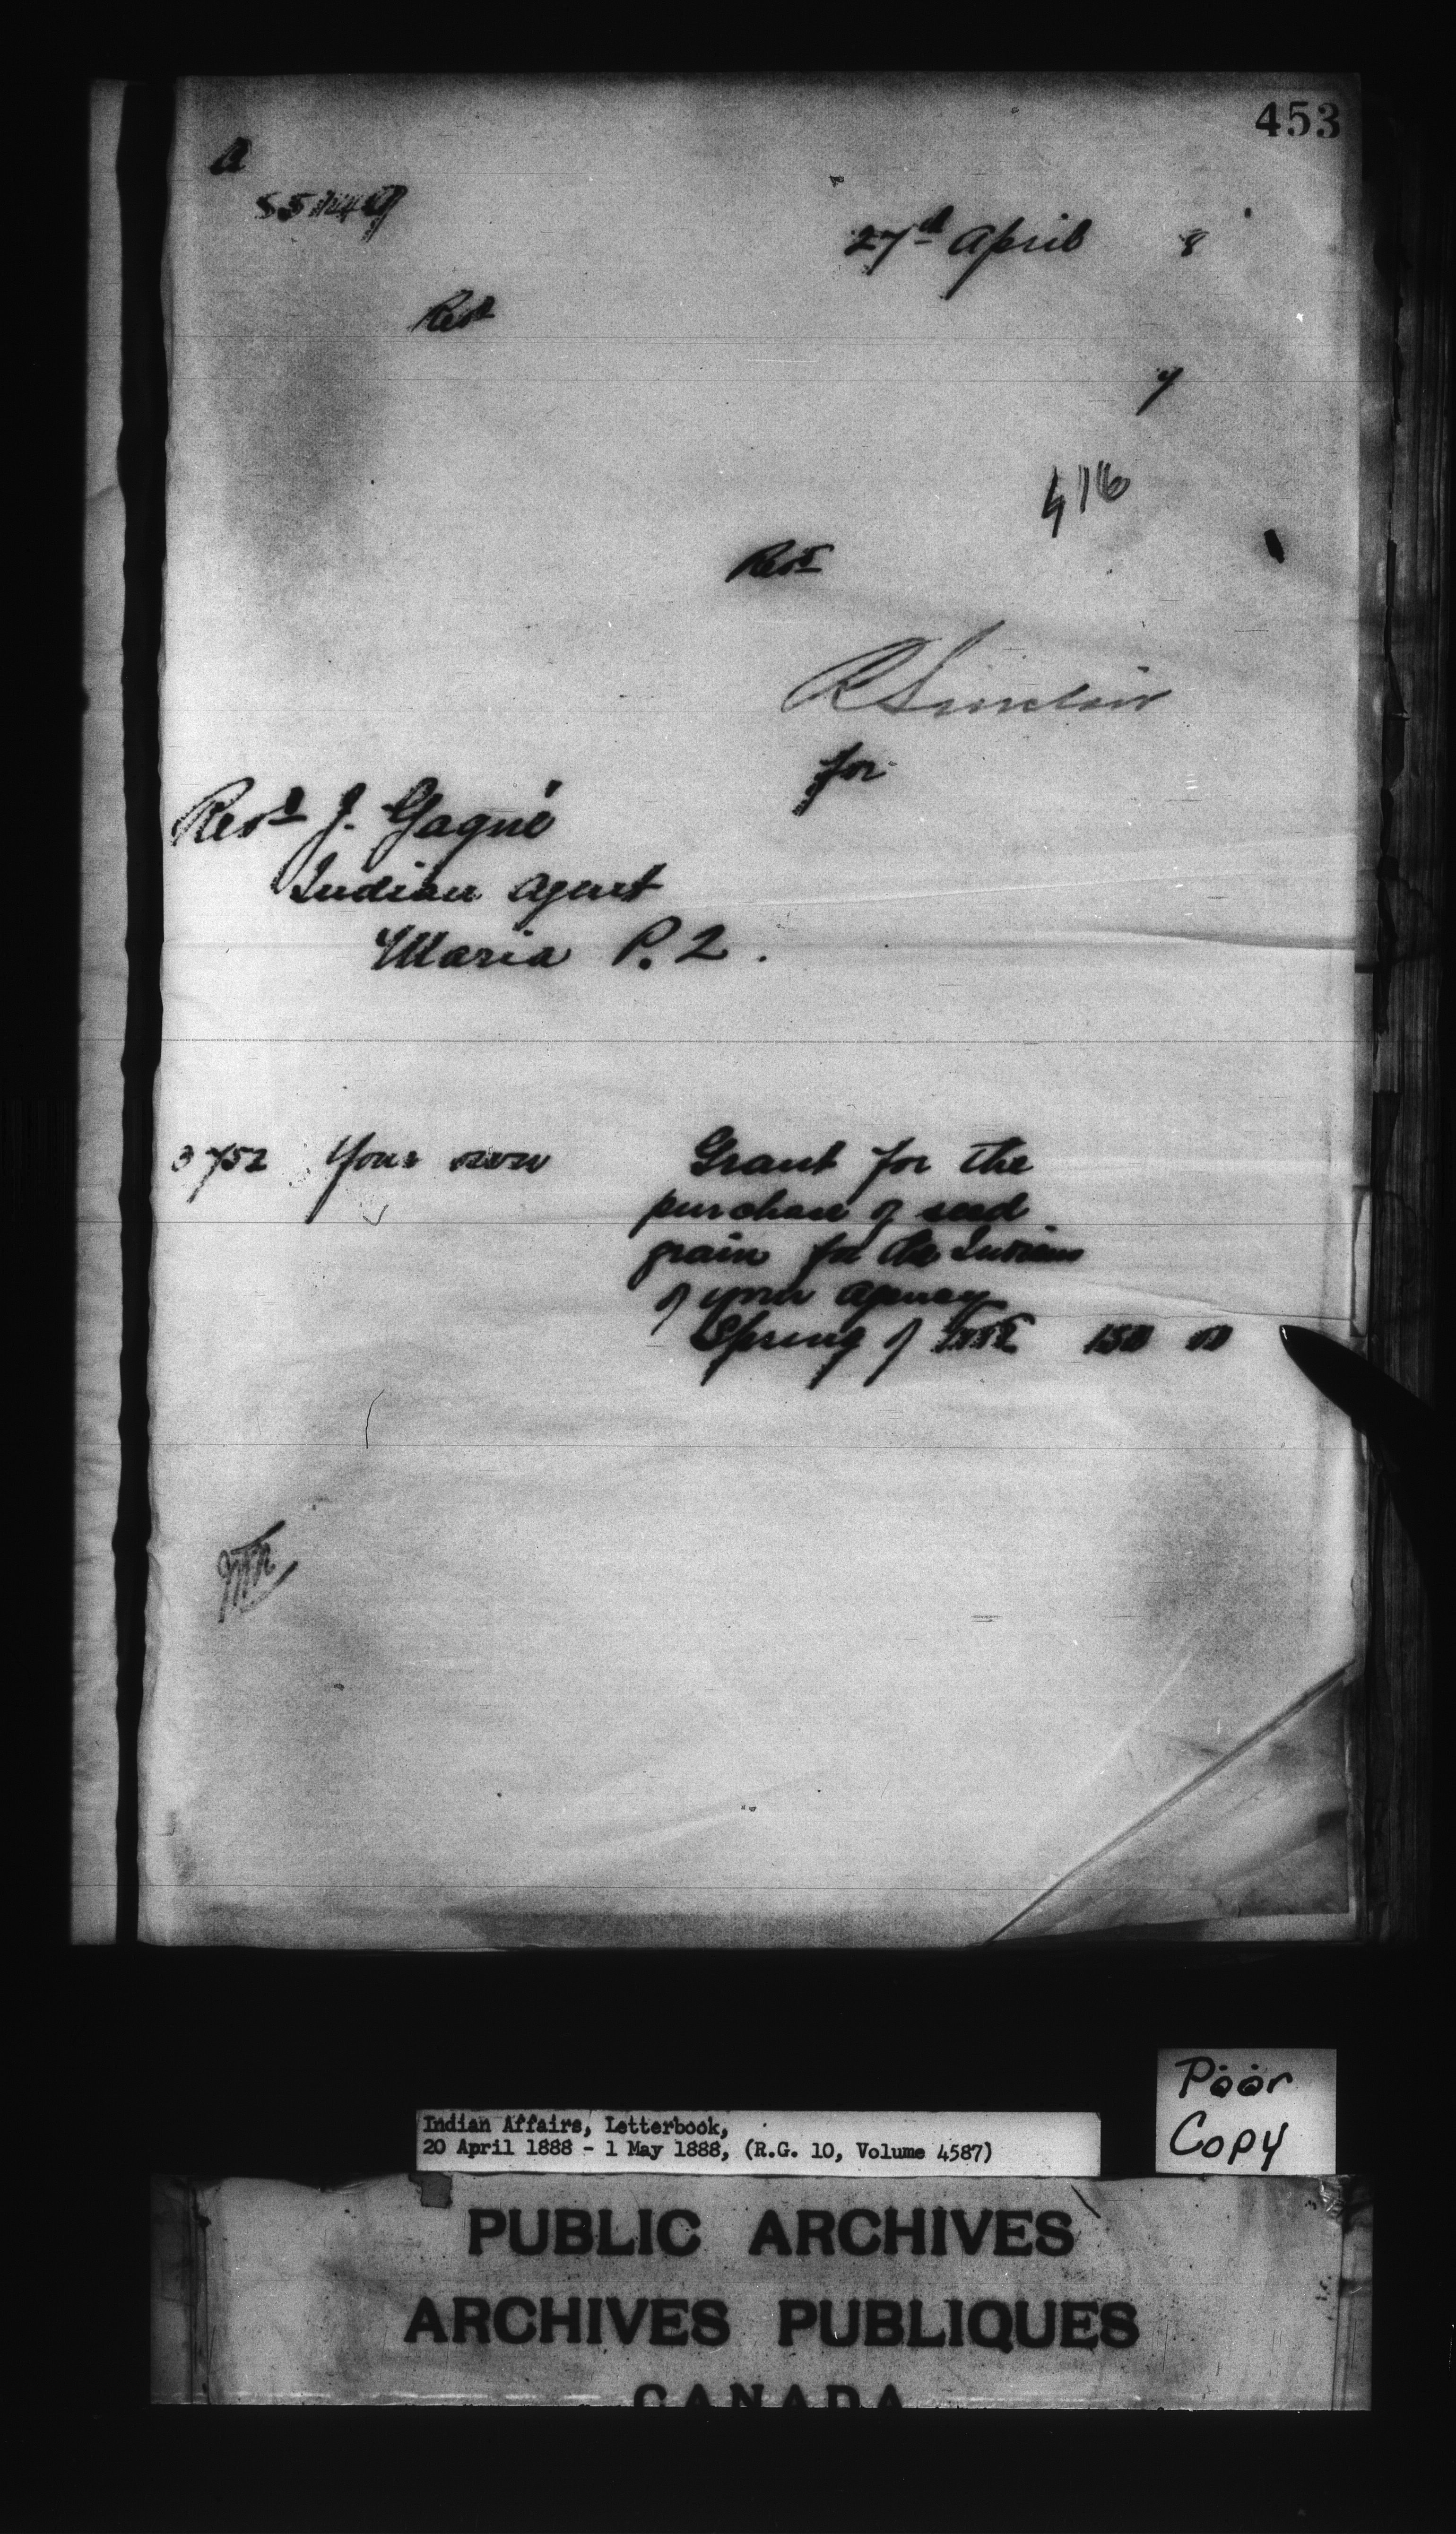 453
A
27th April 8
Revd
y
416
Revd
R Sinclair
for
Revd J. Gagné
Indian Agent
Maria P. 2.
3752 Your own Grant for the
purchase of seed
grain for the Indians
of your Agency
Spring of 1888 150 00
Poor
Copy
Indian Affairs, Letterbook,
20 April 1888 - 1 May 1888, (R.G. 10, Volume 4587)
PUBLIC ARCHIVES
ARCHIVES PUBLIQUES
CANADA